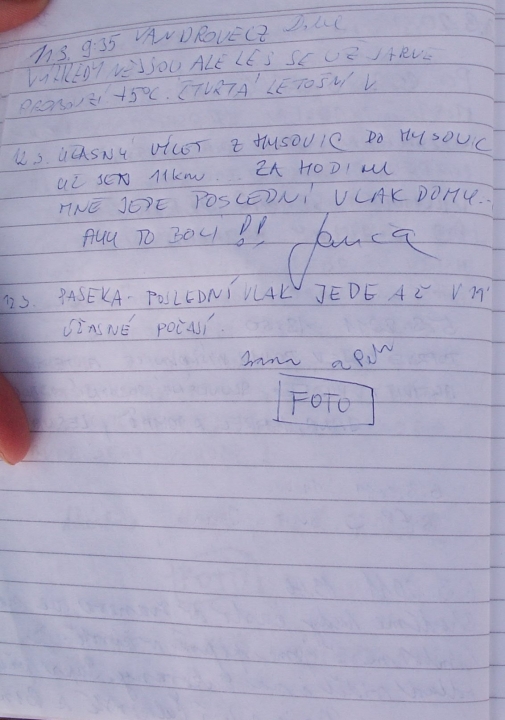 11.3. 9:35 VANDROVECZ
VÝHLEDY NEJSOU ALE LES SE UŽ JARNĚ
PROBOUZÍ +5°C. ČTVRTÁ LETOŠNÍ V.
12.3. ÚŽASNÝ VÝLET Z HYSOVIC DO HYSOVIC
UŽ JEN 11km. ZA HODINU
MNĚ JEDE POSLEDNÍ VLAK DOMŮ..
AUU TO BOLÍ !!
12.3. PASEKA - POSLEDNÍ VLAK JEDE AŽ V
ÚŽASNÉ POČASÍ.
FOTO